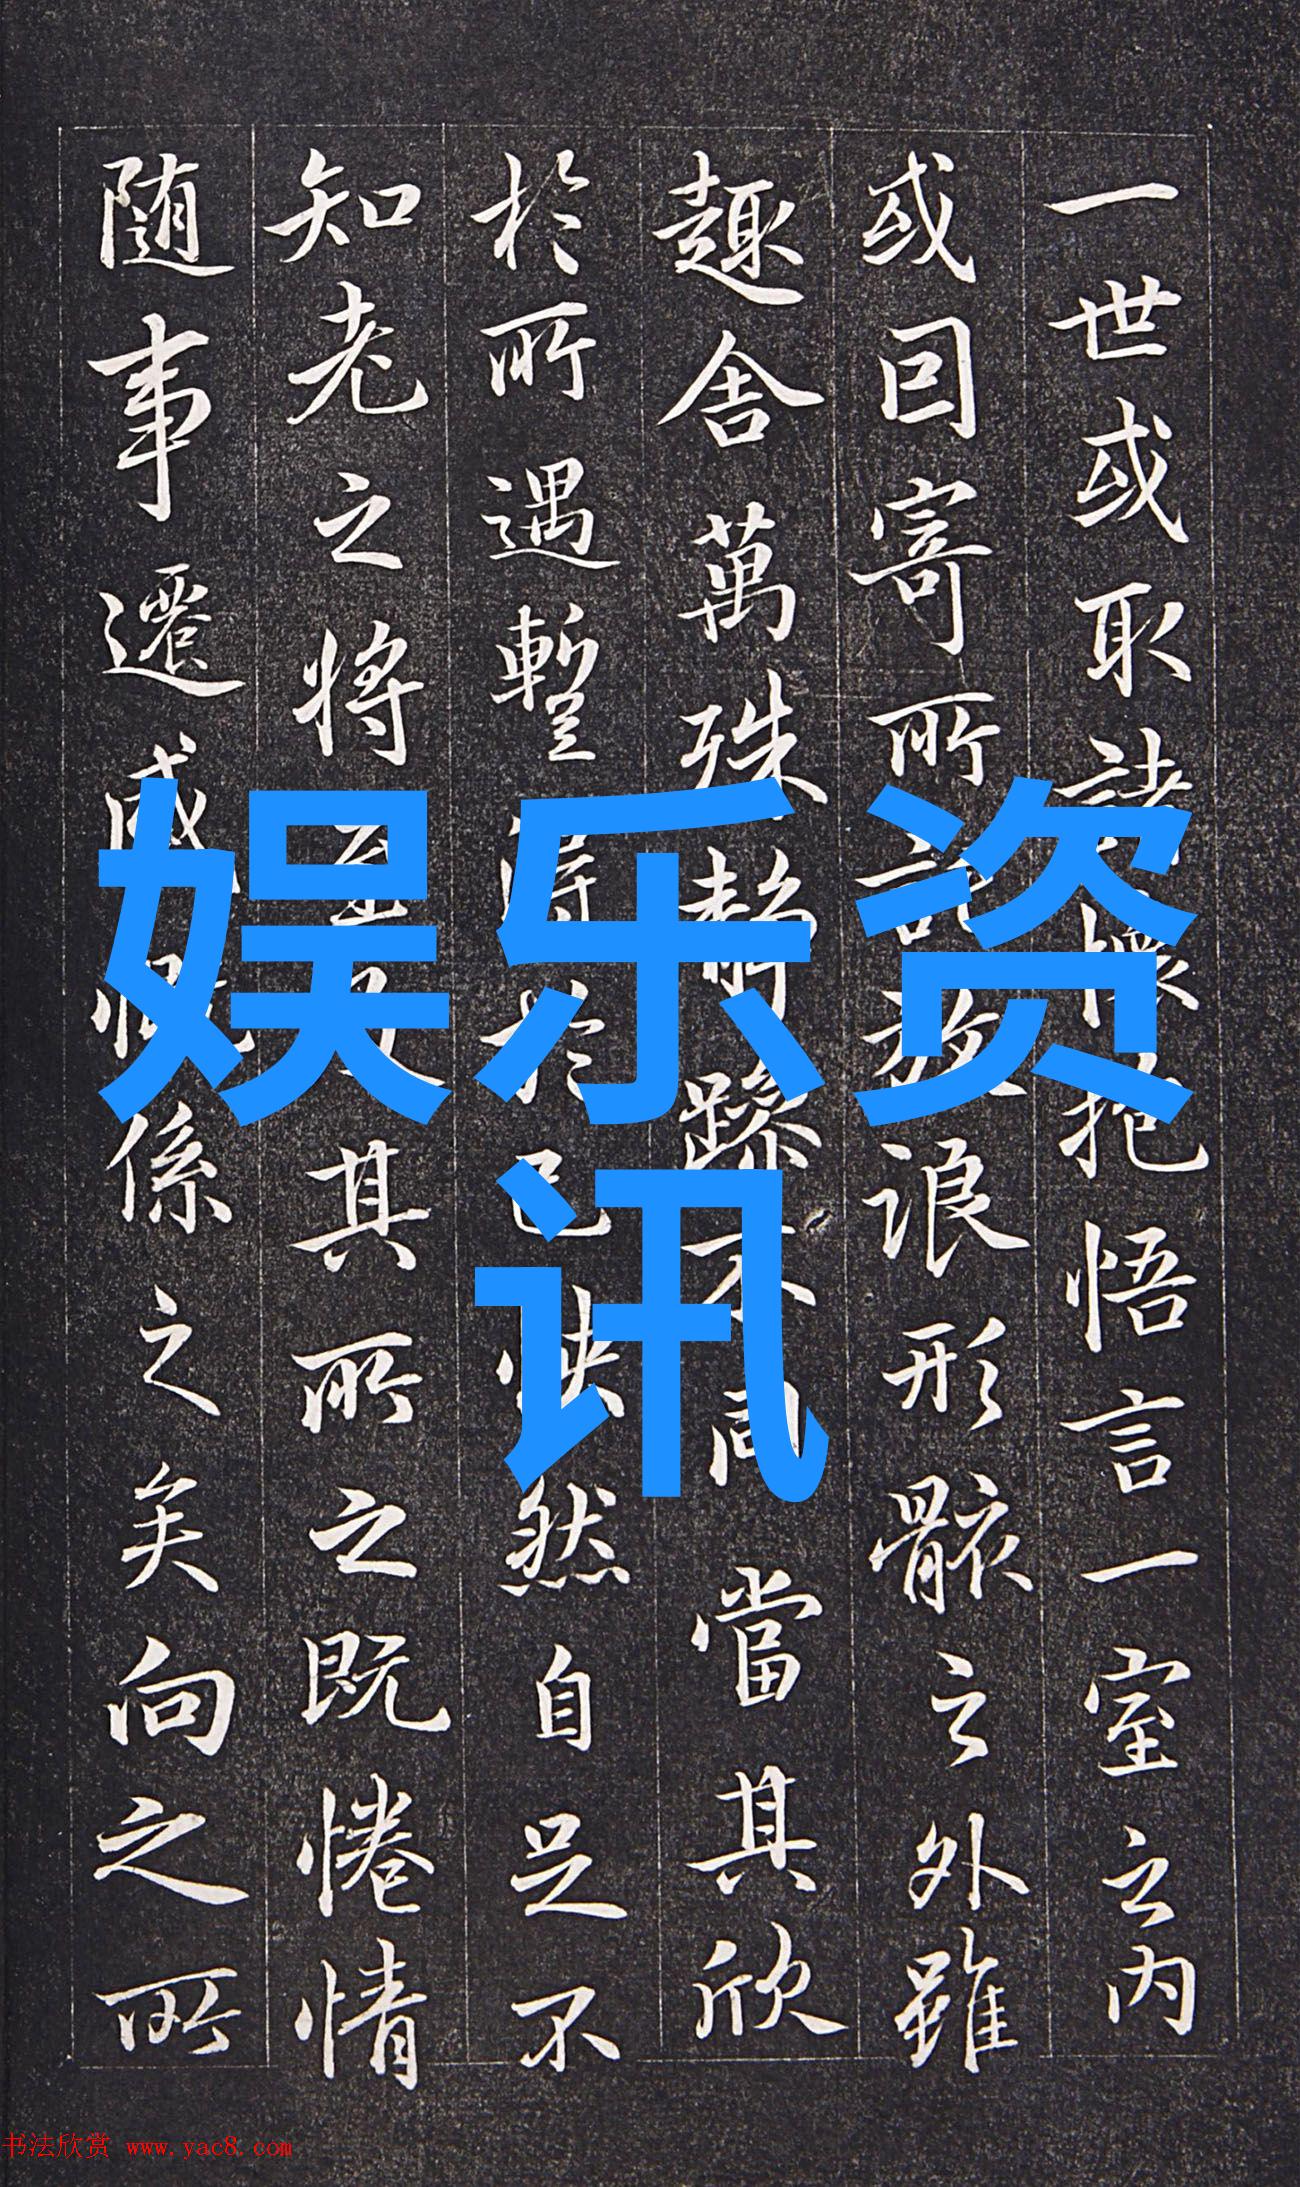 一世或取諸懷抱悟言一室之内
或回寄所託放浪形骸之外雖
趣舍萬殊静躁不同當其欣
於所遇暫得於己怏然自足不
知老之將至及其所之既惓情
随事遷感慨係之矣向之所
娱乐资
讯
书法欣赏 www.yac8.com